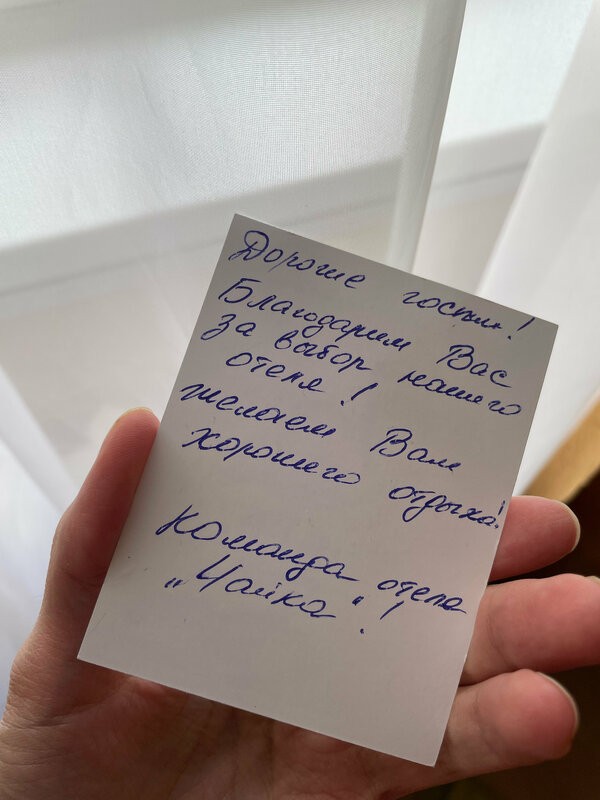 Дорогие гости!
Благодарим Вас
за выбор нашего
отеля!
желаем Вам
хорошего отдыха!
команда отеля
„Чайка"!